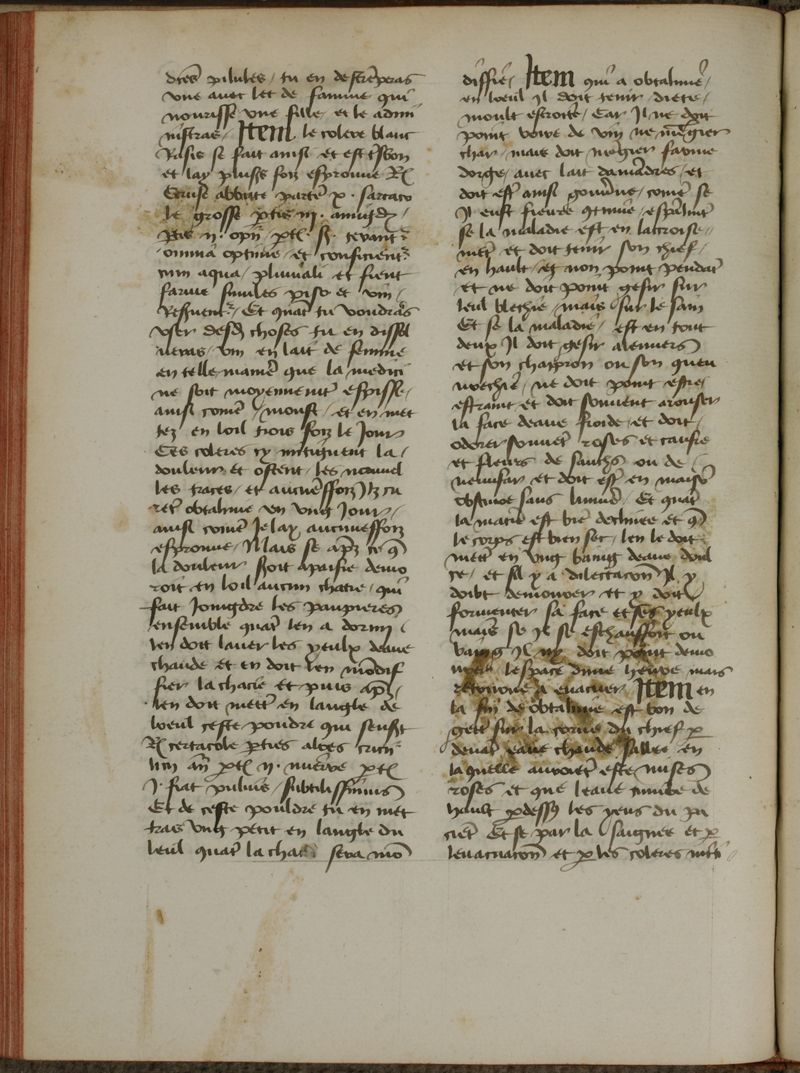 dites pilules / tu en destreperas
vne auec let de famme qui
nourisse vne fille / et le admi
nistras / Item le colere blanc
Rasis se fait ainsi et est tsbon
et lay pluss foiz esprouue Rx
Ceruse abluite partes x . sarcaco
le grosse ptis iij . amigd /
ptis ij . opij ptē sꝫ . terant̃
omnia optime / et conficient̃
cum aqua / pluuiali et fient
farine similes piso et vin /
Et quāt tu vouldras
vser desd choses tu en dissol
ueras / vin en lait de femme
en telle manie᷑ que la medici
ne soit moyennemēt espisse /
ainsi comē / moust / et en met
tez en loil trois foiz le jour
Ces coleres cy mitiguent la /
douleur et ostent / les nouuel
les traces / et aucuēsfoiz Jlz cu
rēt obtalmie en vng jour /
ainsi comē Je lay aucunesfoiz
esprouue / Mais se apz ce q̄
la douleur soit apaisie demo
roit en loil aucun chacie / qui
fait joingdre les paupieres
ensemble quāt len a dormi /
len doit lauer les yeulx deaue
chaude et en doit len mōdif
fier la chacie et puis apͣ /
len doit mettͤ en langle de
loeul ceste pouldre qui sensuit
Rx certacole pties aloes
ān ptē ij . mirre ptē
j . fiat puluis / subtilissimus
Et de ceste pouldre tu en met
tras vng petit en langle du
leul quāt la chacie sera mō
diffie / Item qui a obtalmie /
en loeul jl doit tenir / diete /
moult estroite / Car Jl ne doit
point boire de vin ne mēgier
char / mais doit mēgier farine
dorge / auec lait damandres / et
doit estͤ ainsi gouūne / comē se
Jl eust fieure ꝯtinue / espālmēt
se la maladie est en lacroisse
mēt / et doit tenir son chief /
en hault / et non point pendāt
et ne doit point gesir sur
leul blechie / mais / sur le sain
Et se la maladie / est en tout
deux Jl doit gesir alenuers
et son chapron ou son queu
urechie / ne doit point estre
estraint et doit souuent arouser
la face deaue froide / et doit
odorer souuēt roses et canfre
et fleurs de saulz ou de /
nenufar et doit estͤ en maisō
obscure sans lumie᷑ / Et quāt
la matie᷑ est biē declinee et q̄
le corps est bien sec / len le doit
mettͤ en vng baing deaue doul
ce / et sil y a dilectacōn Jl y
doibt demourer et y doit
fomenter sa face et ses yeulx
mais se jl se eschaussoit ou
baing Jl ny doit point demo
rer lespace dune heure mais
retourne a euacuer / Item en
la fin de obtalmie est bon de
getͤ sur la corne du chief p
deuāt eaue chaude sallee en
laquelle auroiēt este mises
roses et que leaue tumbe de
hault pdessus les yeus du pa
ciēt Et se par la / saignee et p
leuacuacōn et p les coleres miti